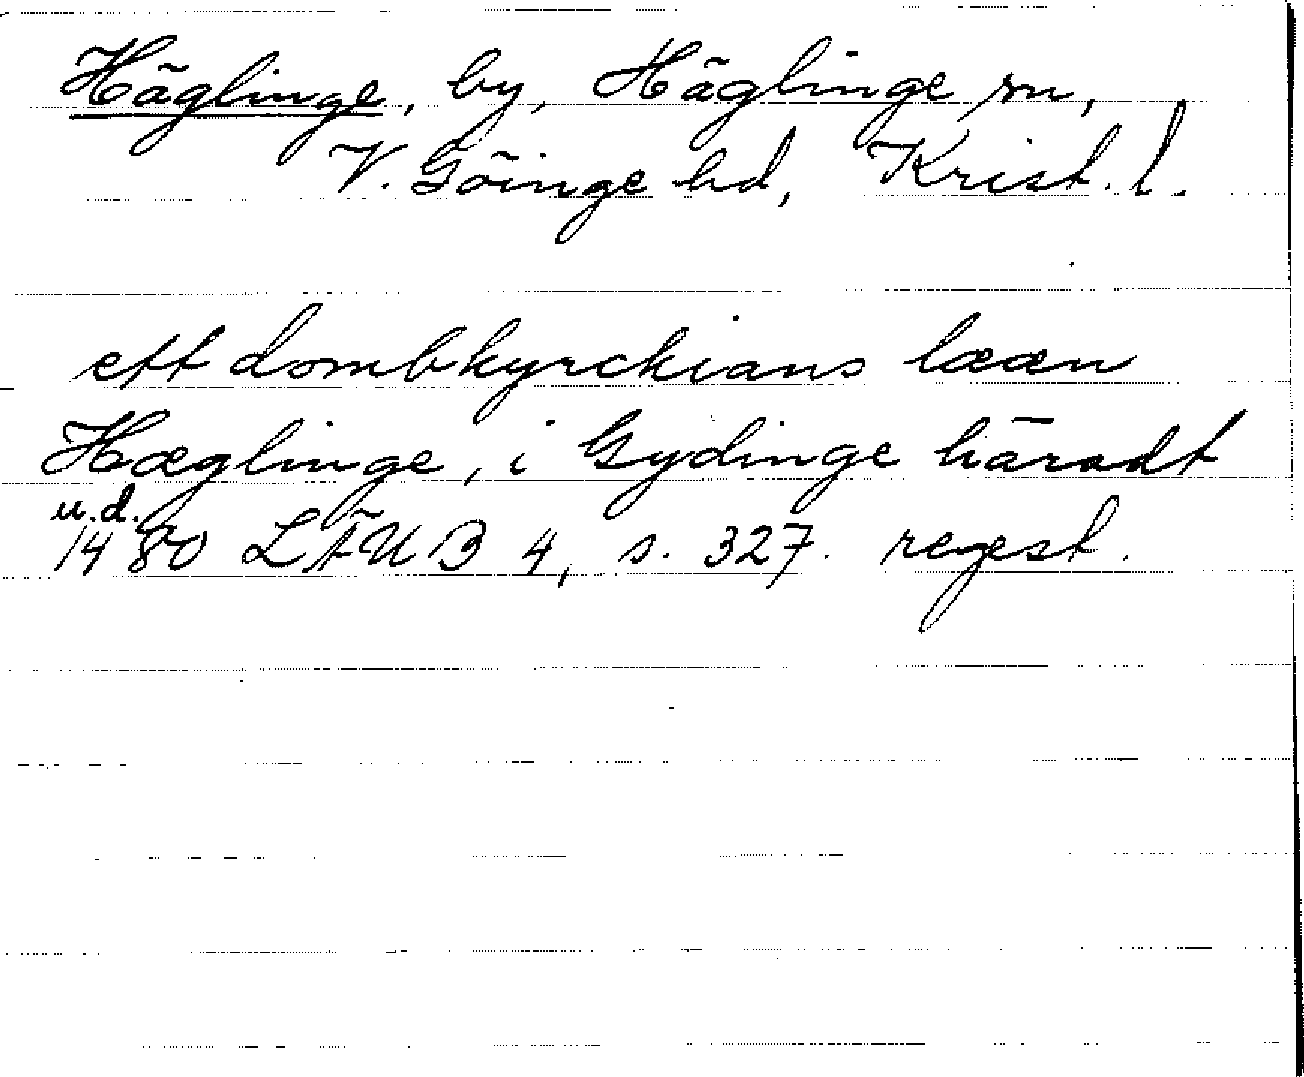 Häglinge, by, Häglinge sn,
V. Göinge hd, Krist. l.
ett dombkyrckians lææn
Hæglinge, i Gydinge häradt
u.d.
1480 LÄUB 4, s. 327. regest.